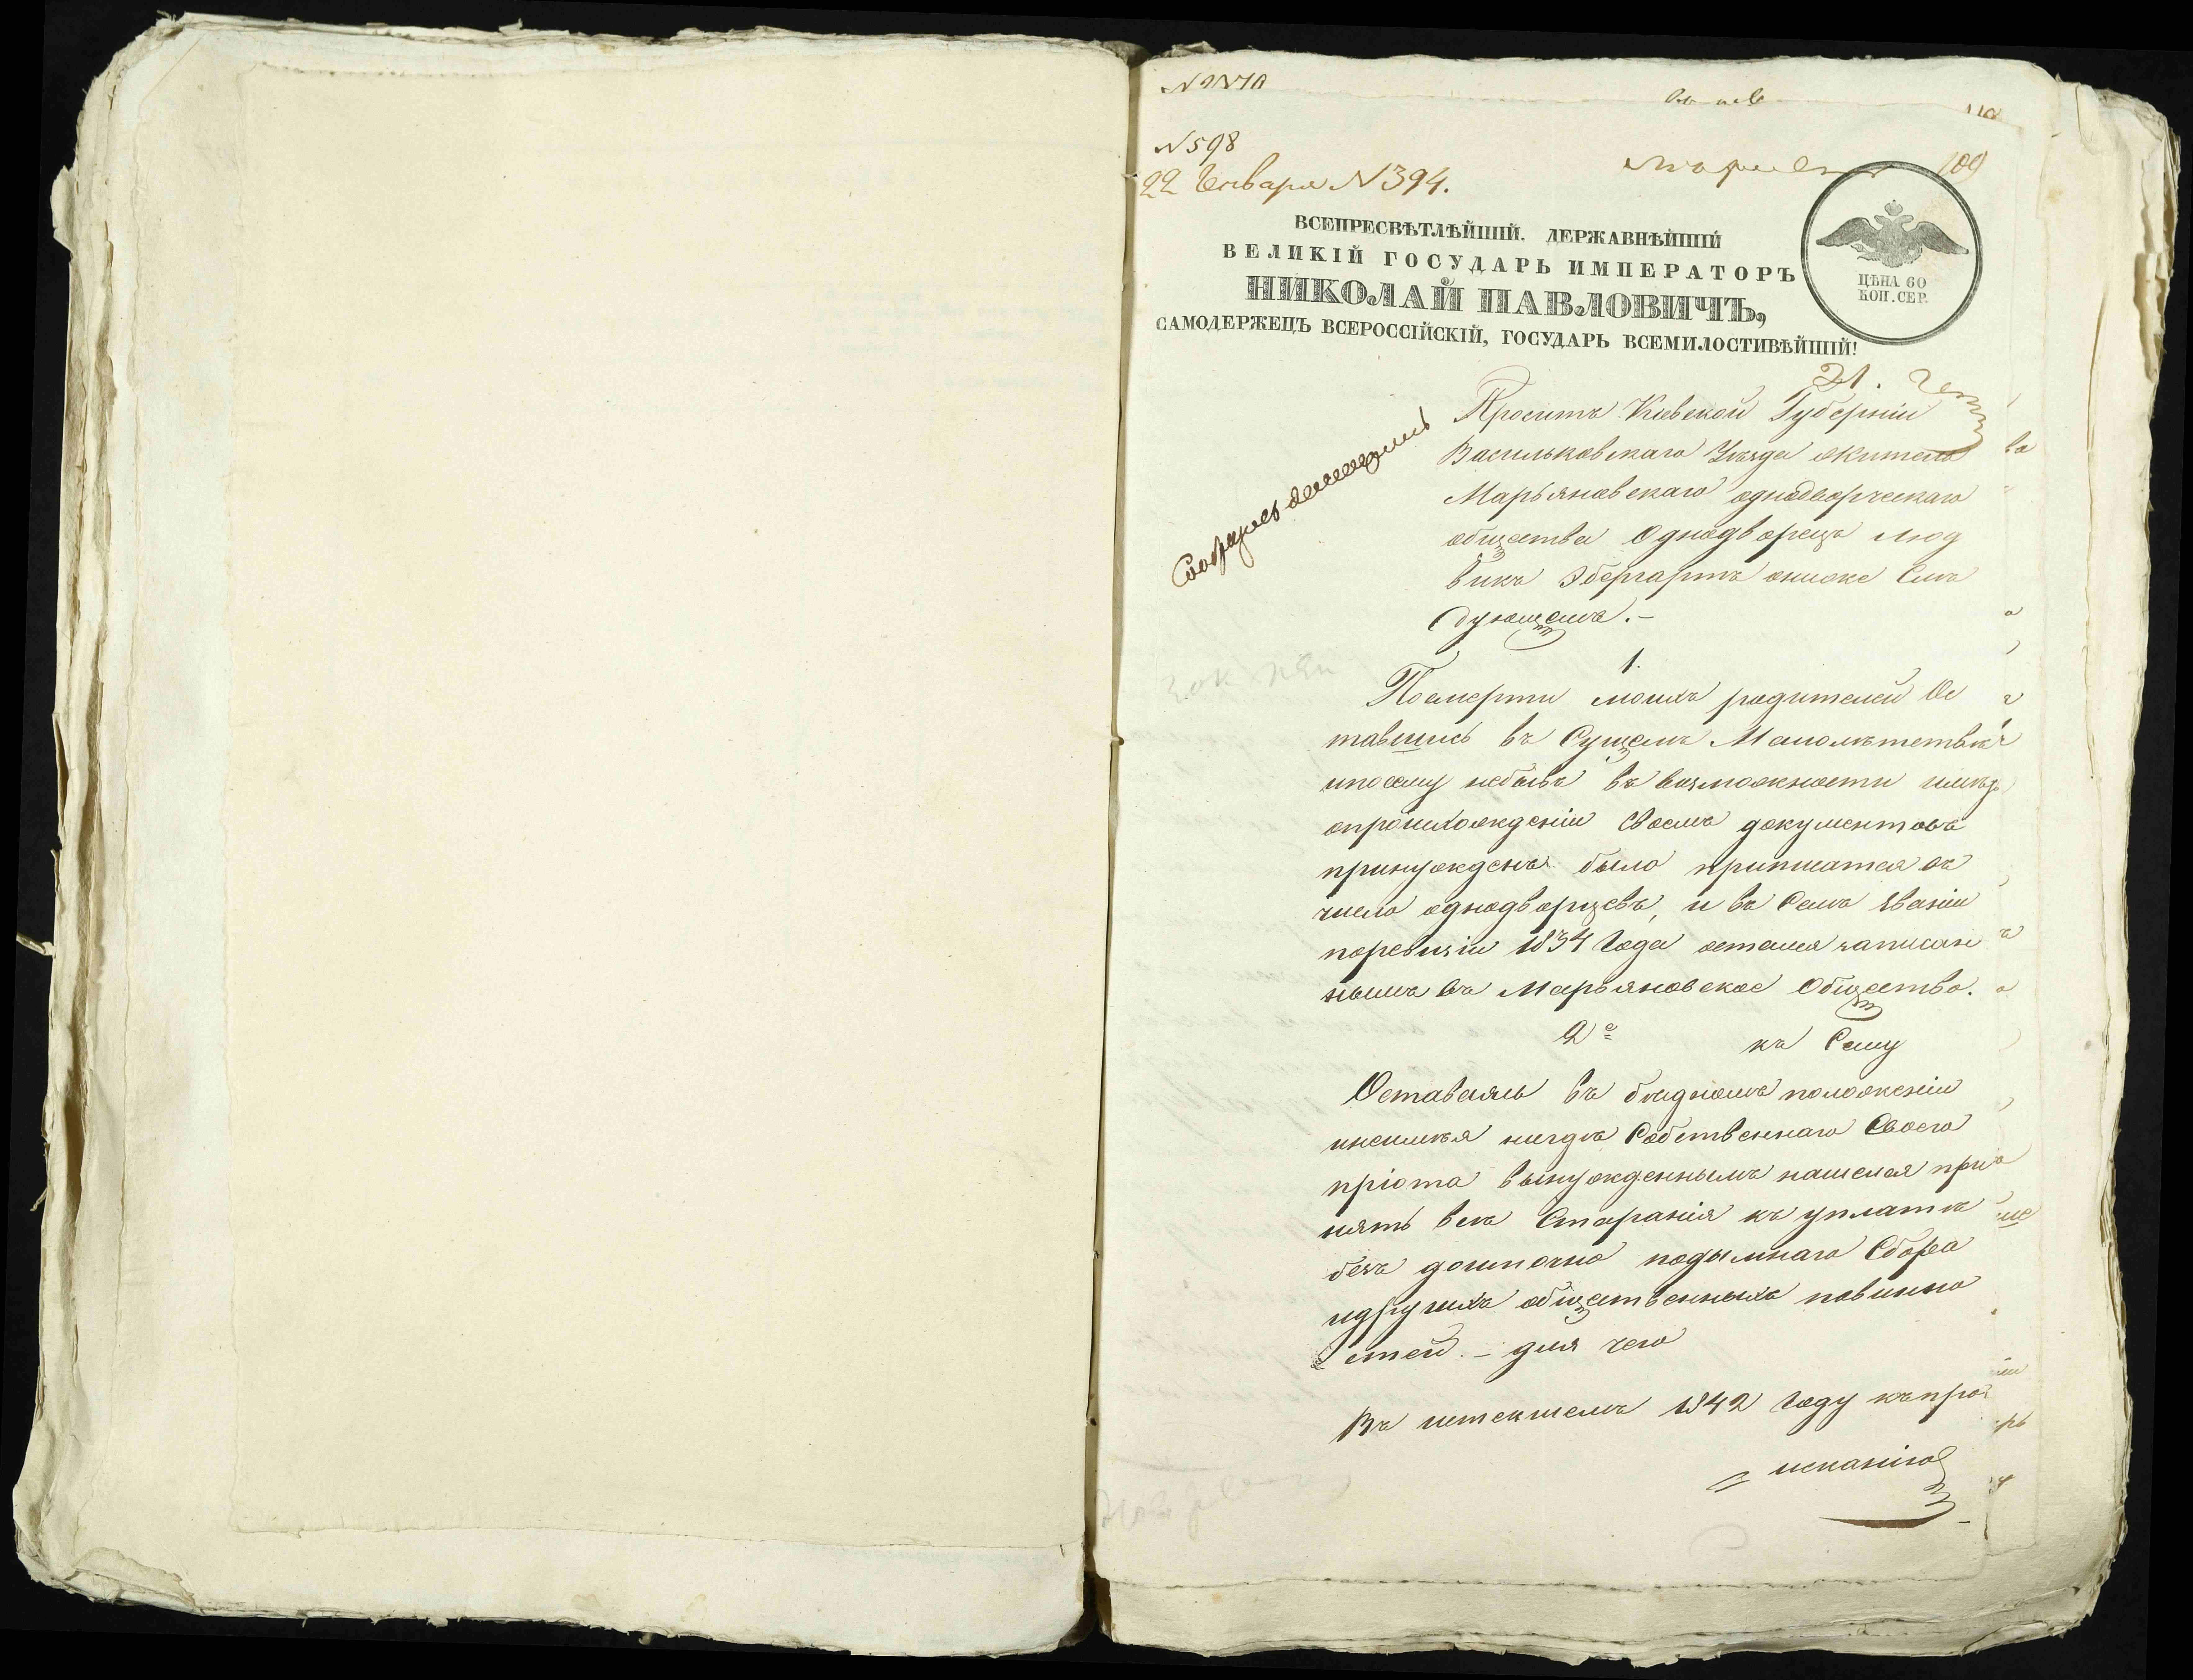 №598
22 Января №394.
109
ВСЕПРЕСВѢТЛѢЙШІЙ. ДЕРЖАВНѢЙШІЙ
ВЕЛИКІЙ ГОСУДАРЬ ИМПЕРАТОРЪ
НИКОЛАЙ ПАВЛОВИЧЪ,
САМОДЕРЖЕЦЪ ВСЕРОССІЙСКІЙ, ГОСУДАРЬ ВСЕМИЛОСТИВѢЙШІЙ!
ЦѢНА 60
КОП. СЕР.
21.
Проситъ Кіевской Губерніи
Васильковскаго Уѣзда житель
Марьяновскаго однодворческаго
общества Однодворецъ Люд
викъ Эбергартъ онижѣ Слѣ
дующемъ.-
1.
Посмерти моихъ родителей Ос
тавшись въ Сущемъ Малолѣтствѣ
ипосему небывъ въ возможности имѣть
опроисхожденіи Своемъ документовъ
принужденъ было приписатся въ
число однодворцевъ, и въ Семъ Званіи
поревизіи 1834 Года остался записан
нымъ въ Марьяновское Общество.
2е къ Сему
Оставаясь въ бѣдномъ положеніи
инеимѣя нигдѣ Собственнаго Своего
пріюта вынужденнымъ нашелся при
нять всѣ Старанія къ уплатѣ
безъ доимочно подымнаго Сбора
идругихъ общественныхъ повинно
стей. - для чего
Въ истекшемъ 1842 Году къпрої
исканію